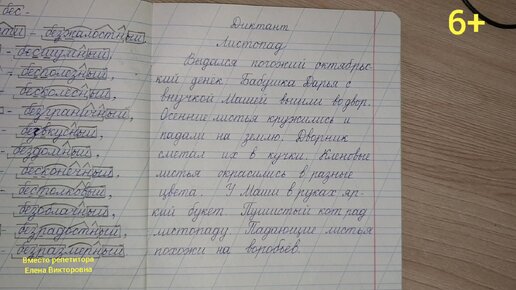 бес-
безжалостный,
бесшумный,
бесполезный,
бесколёсный,
безграничный,
безвкусный,
бездомный,
бесконечный,
бестолковый,
безоблачный,
безрадостный,
безразмерный
Вместо репетитора
Елена Викторовна
6+
Диктант
Листопад
Выдался погожий октябрьс-
кий денек. Бабушка Дарья с
внучкой Машей вышли во двор.
Осенние листья кружились и
падали на землю. Дворник
сметал их в кучки. Кленовые
листья окрасились в разные
цвета. У Маши в руках яр-
кий букет. Пушистый кот рад
листопаду. Падающие листья
похожи на воробьев.